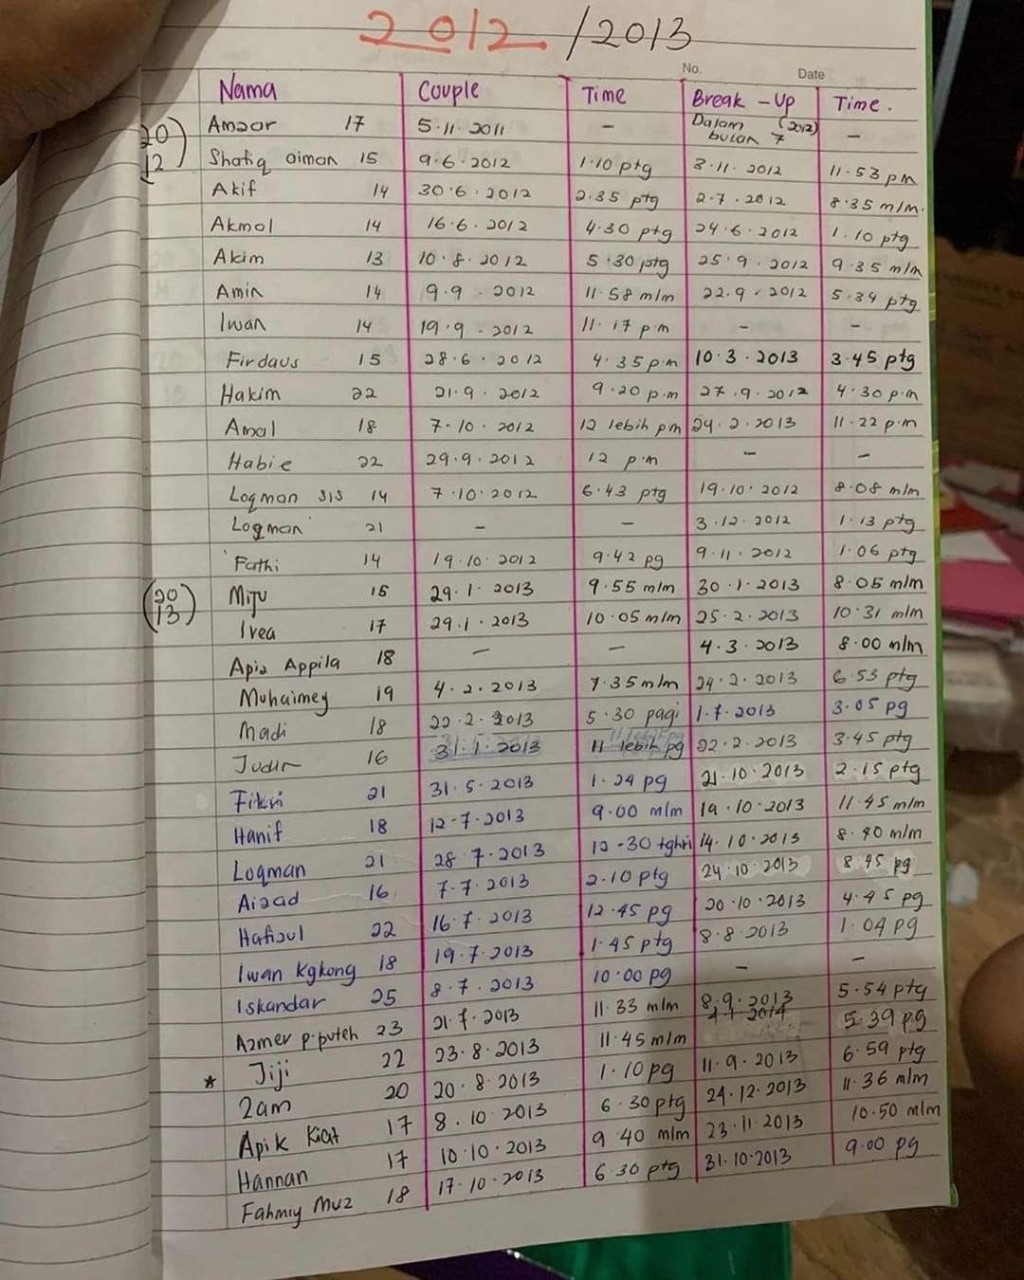 2012 / 2013
No. Date
Nama Couple Time Break - Up Time.
(20 12) Amaor 17 5.11.2011 - Dalam bulan 7 (2012) -
Shafiq aiman 15 9.6.2012 1.10 ptg 3.11.2012 11.53 pm
Akif 14 30.6.2012 2.35 ptg 2.7.2012 8.35 mlm.
Akmal 14 16.6.2012 4.30 ptg 24.6.2012 1.10 ptg
Akim 13 10.8.2012 5.30 ptg 25.9.2012 9.35 mlm
Amin 14 9.9.2012 11.58 mlm 22.9.2012 5.34 ptg
Iwan 14 19.9.2012 11.17 p.m - -
Firdaus 15 28.6.2012 4.35 p.m 10.3.2013 3.45 ptg
Hakim 22 21.9.2012 9.20 p.m 27.9.2012 4.30 p.m
Amal 18 7.10.2012 12 lebih pm 24.2.2013 11.22 p.m
Habie 22 29.9.2012 12 p.m - -
Loqman SIS 14 7.10.2012 6.43 ptg 19.10.2012 8.08 mlm
Loqman 21 - - 3.12.2012 1.13 ptg
Fathi 14 19.10.2012 9.42 pg 9.11.2012 1.06 ptg
(20 13) Miju 15 29.1.2013 9.55 mlm 30.1.2013 8.05 mlm
Irea 17 29.1.2013 10.05 mlm 25.2.2013 10.31 mlm
Apis Appila 18 - - 4.3.2013 8.00 mlm
Muhaimey 19 4.2.2013 7.35 mlm 24.2.2013 6.53 ptg
Madi 18 22.2.2013 5.30 pagi 1.7.2013 3.05 pg
Judin 16 31.1.2013 11 lebih pg 22.2.2013 3.45 ptg
Fikri 21 31.5.2013 1.24 pg 21.10.2013 2.15 ptg
Hanif 18 12-7.2013 9.00 mlm 19.10.2013 11.45 mlm
Loqman 21 28.7.2013 12-30 tghri 14.10.2013 8.40 mlm
Aizad 16 7.7.2013 2.10 ptg 24.10.2013 8.45 pg
Hafizul 22 16.7.2013 12.45 pg 20.10.2013 4.45 pg
Iwan Kgkong 18 19.7.2013 1.45 ptg 8.8.2013 1.04 pg
Iskandar 25 8.7.2013 10.00 pg - -
Azmer p.puteh 23 21.7.2013 11.33 mlm 8.9.2013 5.54 ptg
* Jiji 22 23.8.2013 11.45 mlm 5.39 pg
2am 20 20.8.2013 1.10 pg 11.9.2013 6.59 ptg
Apik Kiat 17 8.10.2013 6.30 ptg 24.12.2013 11.36 mlm
Hannan 17 10.10.2013 9.40 mlm 23.11.2013 10.50 mlm
Fahmiy Muz 18 17.10.2013 6.30 ptg 31.10.2013 9.00 pg